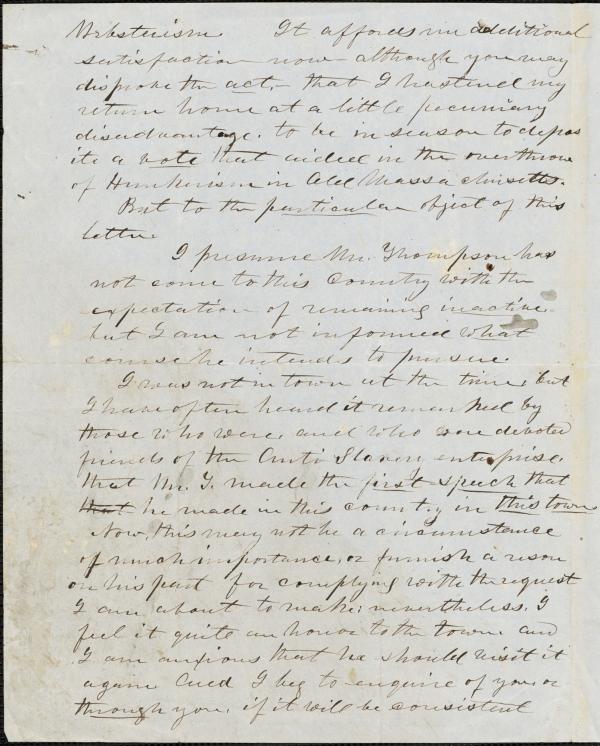 Websterism It affords me additional
satisfaction now although you may
disprove the act, that I hastened my
return home at a little pecuniary
disadvantage. to be in season to depos
ite a vote that aided in the overthrow
of Hunkerism in Old Massachusetts.
But to the particular object of this
letter
I presume Mr. Thompson has
not come to this Country with the
expectation of remaining inactive.
but I am not informed what
course he intends to pursue.
I was not in town at the time, but
I have often heard it remarked by
those who were, and who were devoted
friends of the Anti Slavery enterprise.
that Mr. T. made the first speech that
that he made in this country in this town
Now, this may not be a circumstance
of much importance, or furnish a reson
on his part for complying with the request
I am about to make; nevertheless, I
feel it quite an honor to the town and
I am anxious that he should visit it
again. And I beg to enquire of you, or
through you, if it will be consistent